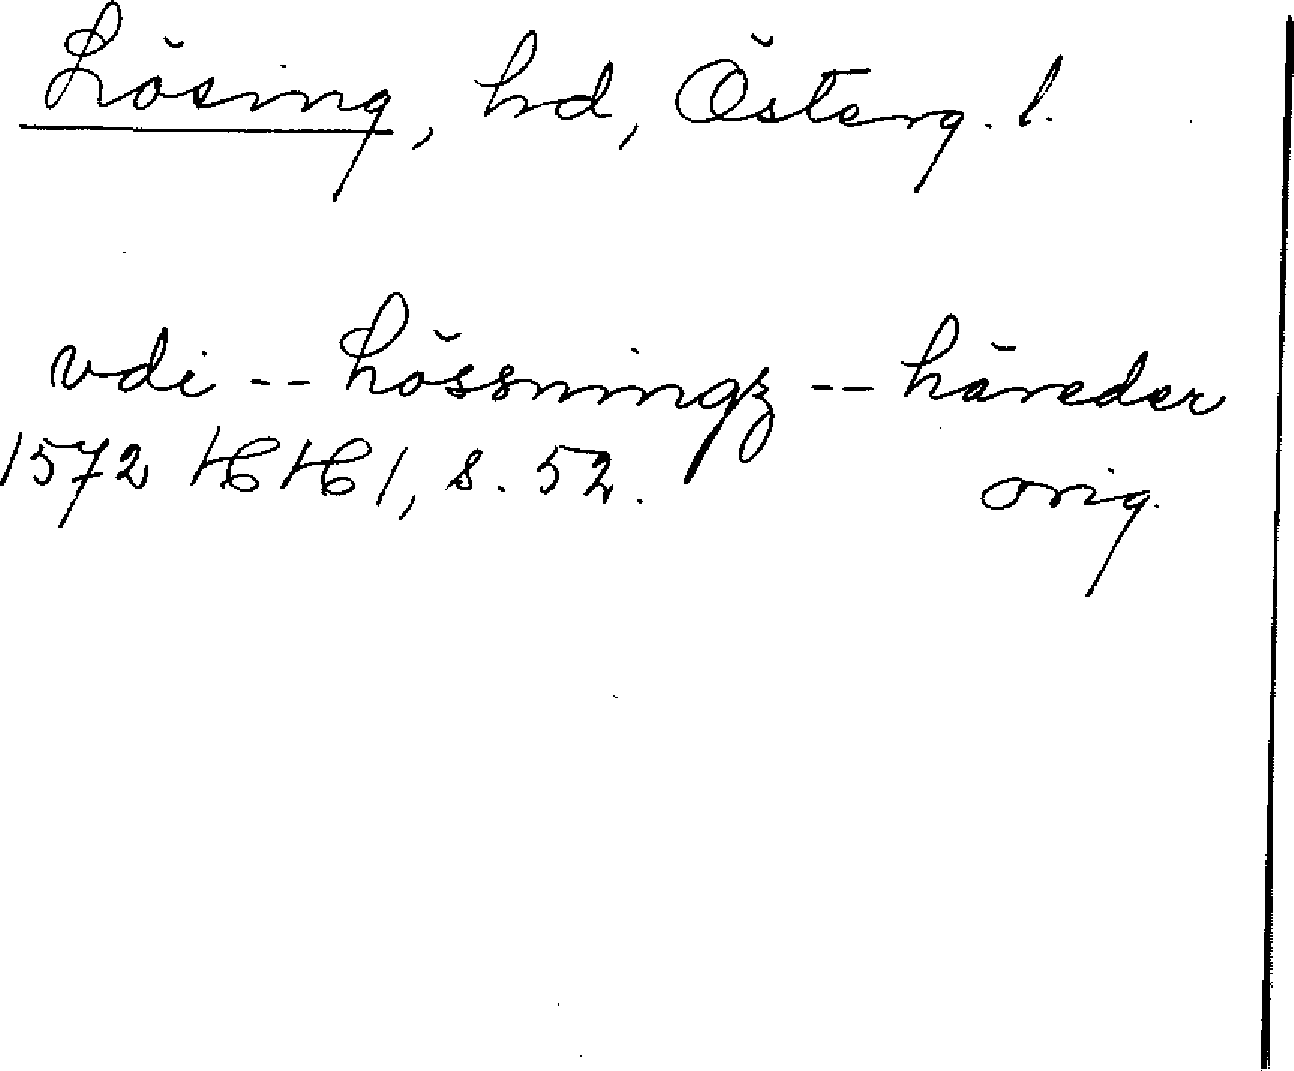 Lösing, hd, Österg. l.
vdi -- Lössningz -- häreder
1572 HH 1, s. 52. orig.